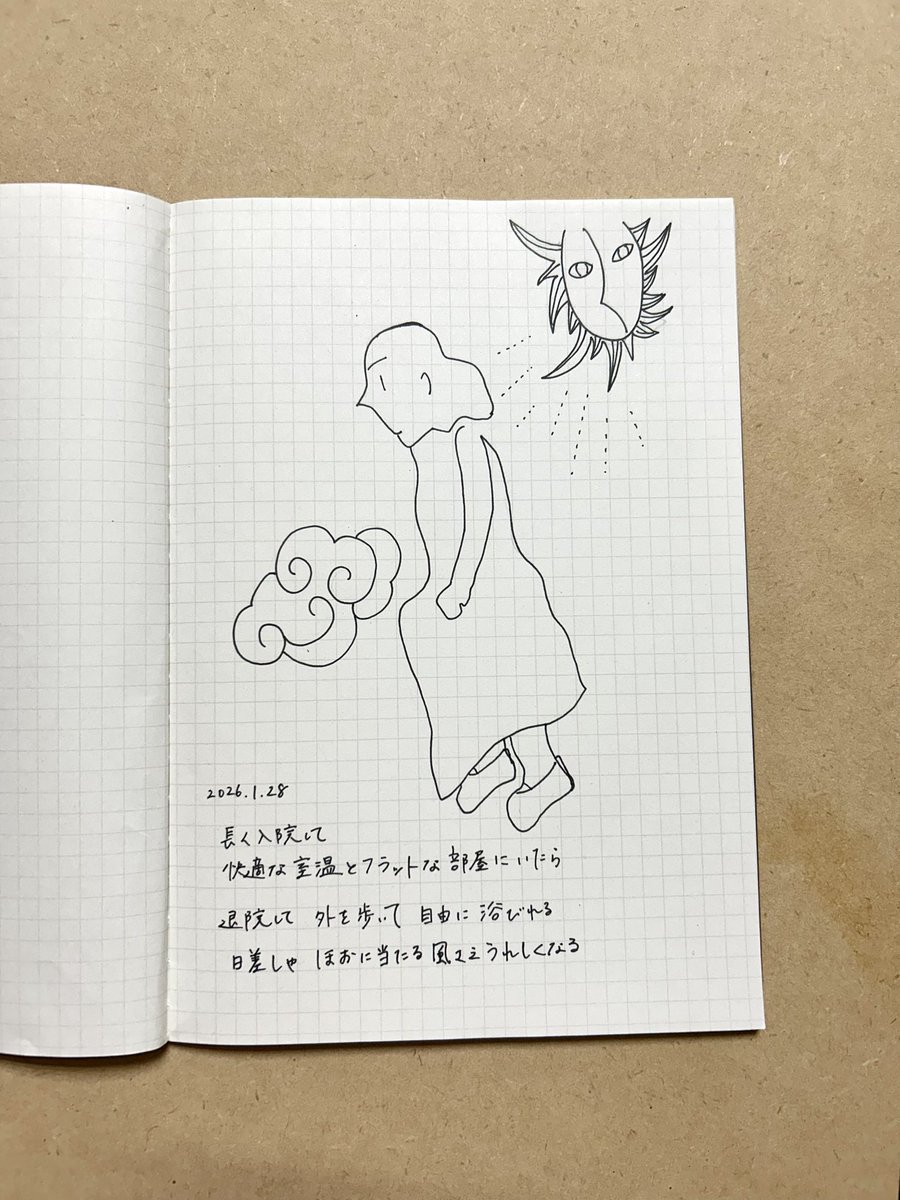 2026.1.28
長く入院して
快適な室温とフラットな部屋にいたら
退院して 外を歩いて 自由に浴びれる
日差しや ほおに当たる風さえうれしくなる